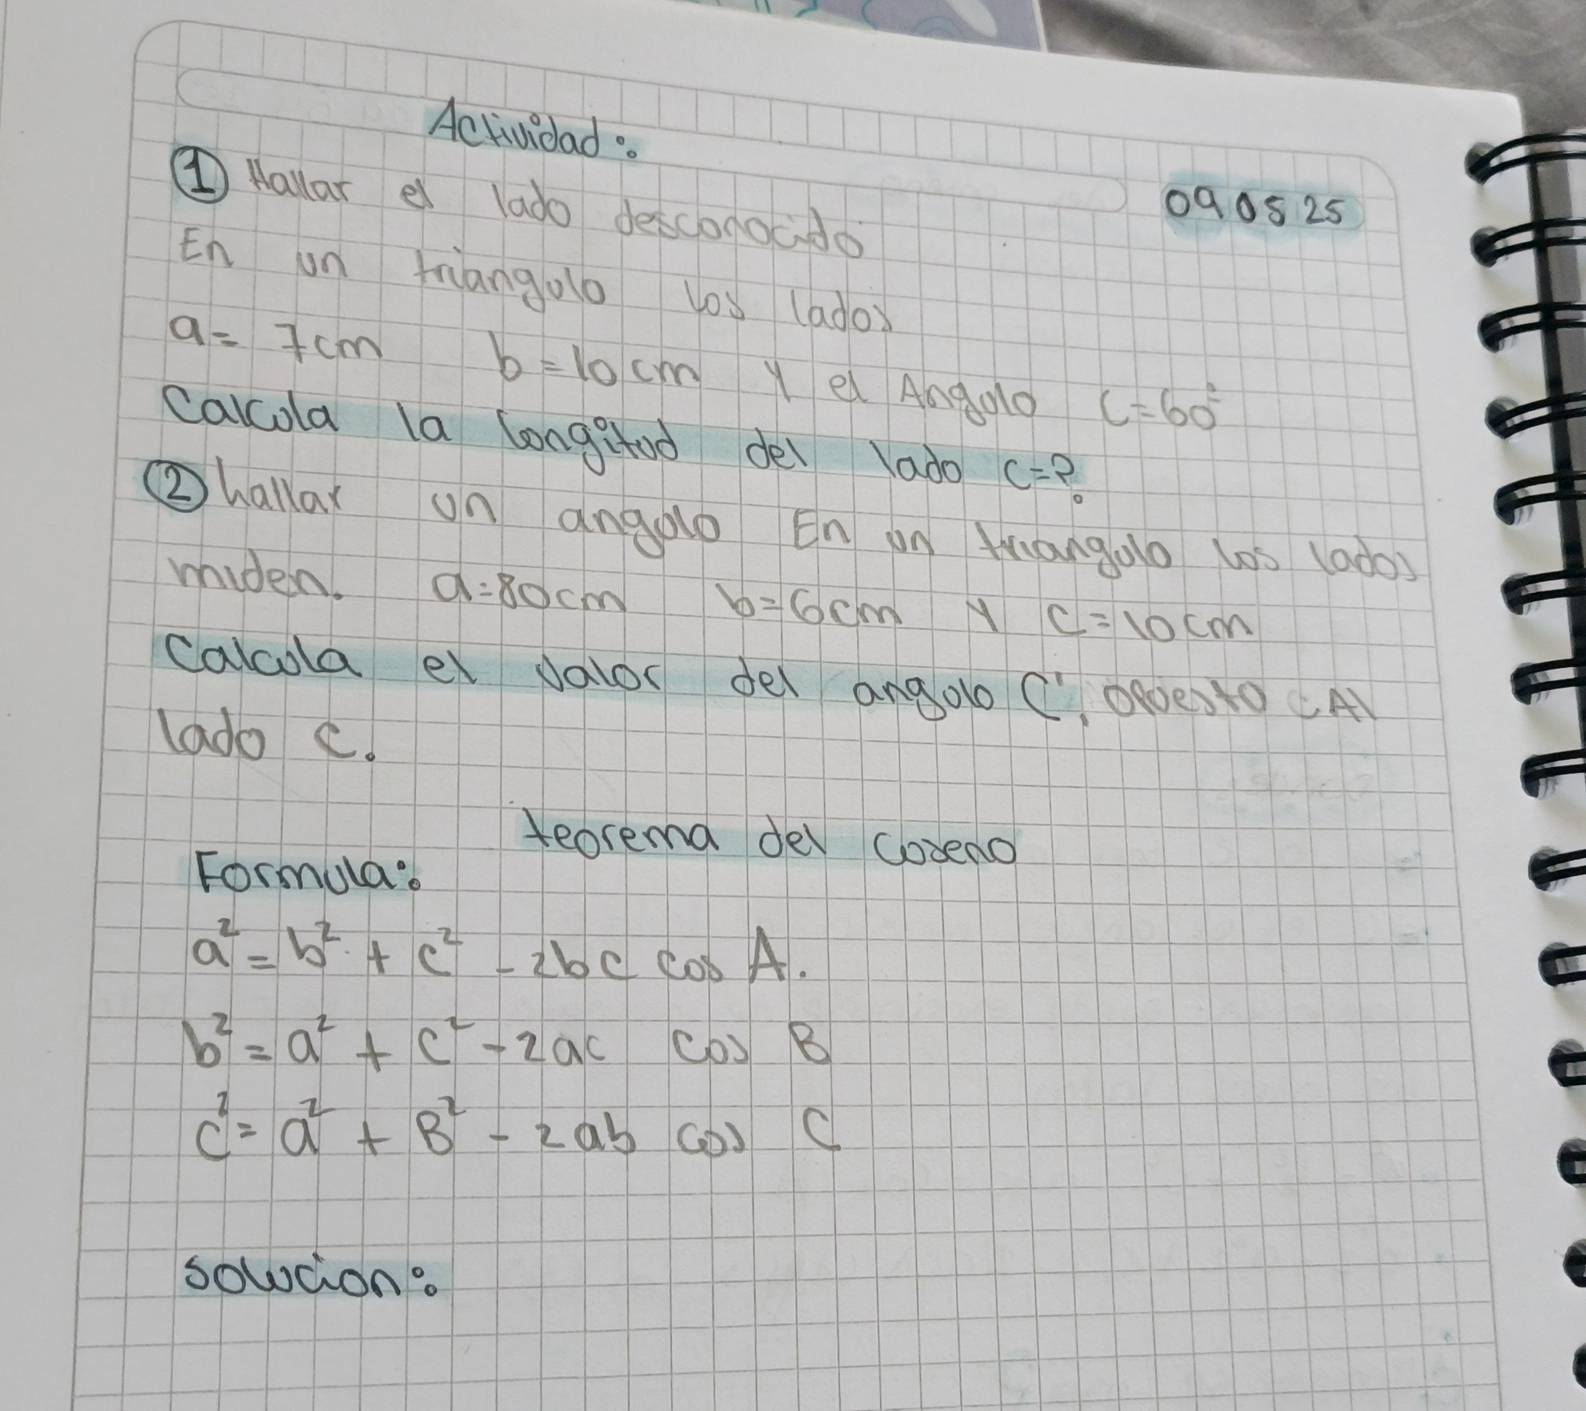 Actividad:
090525
① Hallar el lado desconocido
En un triangulo los lados
a = 7cm b = 10 cm y el Angulo C = 60°
Calcula la longitud del lado c = ?
② hallar un angulo En un triangulo los lados
miden. a = 80cm b = 6cm y c = 10 cm
Calcula el valor del angulo C, opuesto Al
lado c.
teorema del coseno
Formula:
a² = b² + c² - 2bc cos A.
b² = a² + c² - 2ac cos B
c² = a² + B² - 2ab cos C
solucion: